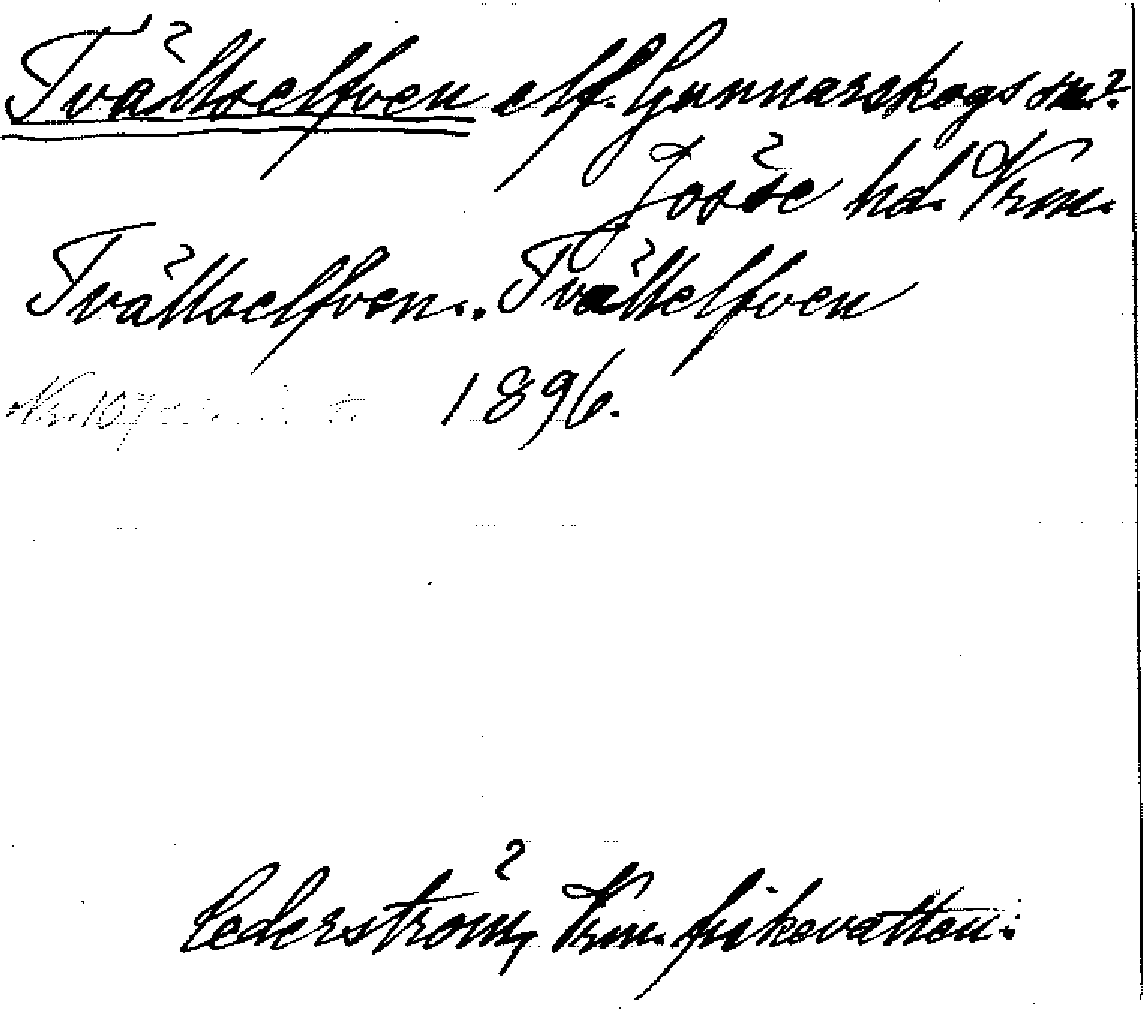 Tvällselfven elf. Gunnarskogs sn?
Jösse hd. Vrm.
Tvällselfven.. Tvällelfven
1896.
Cederström, Vrm. fiskevatten: